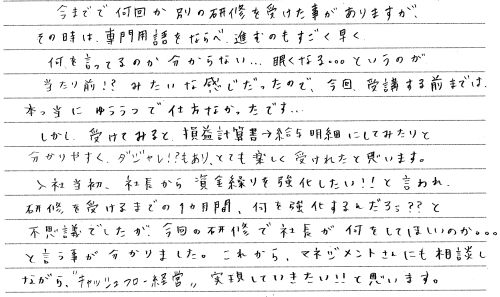 今までで何回か別の研修を受けた事がありますが、
その時は、専門用語をならべ、進むのもすごく早く、
何を言ってるのか分からない…眠くなる…というのが
当たり前!?みたいな感じだったので、今回、受講する前までは、
本っ当にゆううつで仕方なかったです…
しかし、受けてみると、損益計算書→給与明細にしてみたりと
分かりやすく、ダジャレ!?もあり、とても楽しく受けれたと思います。
入社当初、社長から資金繰りを強化したい!!と言われ、
研修を受けるまでの1カ月間、何を強化するんだろう??と
不思議でしたが、今回の研修で社長が何をしてほしいのか…
と言う事が分かりました。これから、マネジメントさんにも相談し
ながら、"キャッシュフロー経営"実現していきたい!!と思います。